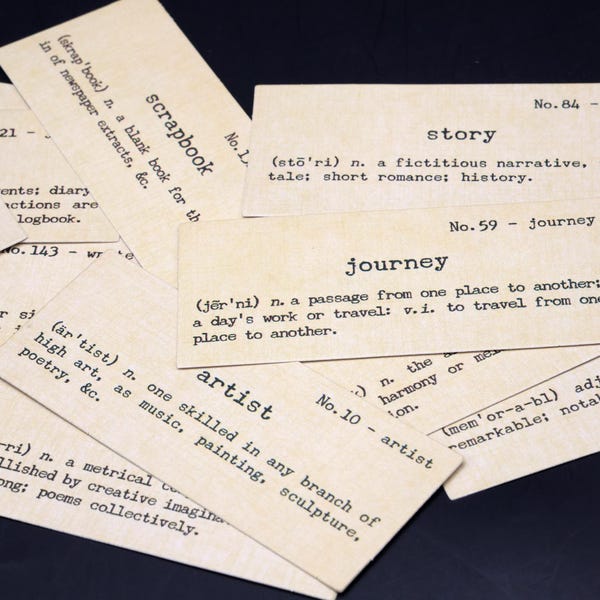 No.1
scrapbook
(skrap'book) n. a blank book for th
in of newspaper extracts, &c.
No.84 -
story
(stō'ri) n. a fictitious narrative,
tale; short romance; history.
21 -
ents; diary
actions are
logbook.
No.59 - journey
journey
(jẽr'ni) n. a passage from one place to another;
a day's work or travel: v.i. to travel from one
place to another.
No.143 -
No.10 - artist
artist
(är'tist) n. one skilled in any branch of
high art, as music, painting, sculpture,
poetry, &c.
) n. the a
harmony or me
ion.
(mem'or-a-bl) adj
remarkable; notab
-ri) n. a metrical co
llished by creative imagina
ong; poems collectively.